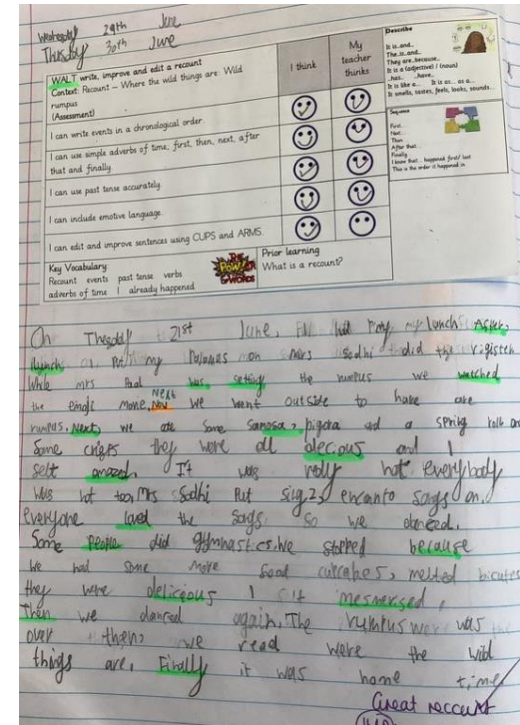 Wednesday 29th June
Thursday 30th June
WALT write, improve and edit a recount
Context: Recount – Where the wild things are: Wild
rumpus
(Assessment)
I think
My
teacher
thinks
I can write events in a chronological order
I can use simple adverbs of time, first, then, next, after
that and finally
I can use past tense accurately
I can include emotive language
I can edit and improve sentences using CUPS and ARMS.
Key Vocabulary:
Recount events past tense verbs
adverbs of time I already happened
Prior learning
What is a recount?
Describe
It is..and..
The..is..and..
They are..because..
It is a (adjective) / (noun)
..has.. ..have..
It is like a... It is as... as a...
It smells, tastes, feels, looks, sounds...
Sequence
First..
Next..
Then
After that..
Finally
I know that... happened first/ last
This is the order it happened in
On 21st June, my lunch After
lunch put my mrs Sodhi did the
While mrs was setting the rumpus we watched
the emoji movie, Next we went outside to have are
rumpus, Next, we ate some samosa, and a spring roll and
Some crisps they were all and I
amazed. It was rely hot everybody
was hot too, Mrs Sodhi Put sing 2, encanto sogs on.
everyone loved the sogs. so we danced.
Some People did gymnastics. We stoped because
We had some more food cupcakes, melted
they were delicious I mesmersed,
Then we danced again. The rumpus was
over then, we read were the wild
things are, Finally it was home time
Great recount